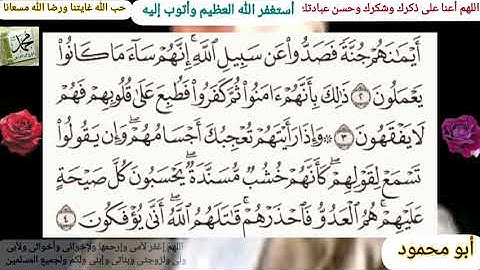 اللهم أعنا على ذكرك وشكرك وحسن عبادتك
أستغفر الله العظيم وأتوب إليه
حب الله غايتنا ورضا الله مسعانا
محمد
أَيْمَٰنَهُمْ جُنَّةً فَصَدُّوا۟ عَن سَبِيلِ ٱللَّهِ ۚ إِنَّهُمْ سَآءَ مَا كَانُوا۟
يَعْمَلُونَ ٢ ذَٰلِكَ بِأَنَّهُمْ ءَامَنُوا۟ ثُمَّ كَفَرُوا۟ فَطُبِعَ عَلَىٰ قُلُوبِهِمْ فَهُمْ
لَا يَفْقَهُونَ ٣ ۞ وَإِذَا رَأَيْتَهُمْ تُعْجِبُكَ أَجْسَامُهُمْ ۖ وَإِن يَقُولُوا۟
تَسْمَعْ لِقَوْلِهِمْ ۖ كَأَنَّهُمْ خُشُبٌ مُّسَنَّدَةٌ ۖ يَحْسَبُونَ كُلَّ صَيْحَةٍ
عَلَيْهِمْ ۚ هُمُ ٱلْعَدُوُّ فَٱحْذَرْهُمْ ۚ قَٰتَلَهُمُ ٱللَّهُ ۖ أَنَّىٰ يُؤْفَكُونَ ٤
أبو محمود
اللهم إغفر لأمي وإرحمها ولإخواني وأخواتي ولأبي
ولي ولزوجتي وبناتي وإبني ولكم ولجميع المسلمين